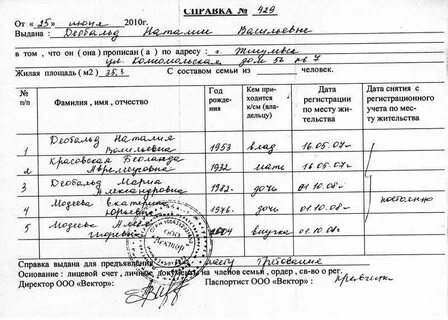 СПРАВКА № 429
От «25» июня 2010г.
Выдана: Деобальд Наталии Васильевне
в том , что он ( она ) прописан ( а ) по адресу : г. Жигулевск
ул. Комсомольская дом 56 кв. 7
Жилая площадь ( м2 ) 35,3 С составом семьи из человек.
№ п/п Фамилия , имя , отчество Год рождения Кем приходится к/см (владельцу) Дата регистрации по месту жительства Дата снятия с регистрационного учета по месту жительства
1 Деобальд Наталия Васильевна 1953 влад. 16.05.07г
2 Красовская 1932 мать 16.05.07г
3 Деобальд Мария Александровна 1982 дочь 01.10.08г
4 Модеева Екатерина Юрьевна 1976 дочь 01.10.08г
5 2004 внучка 01.10.08г
постоянно
Справка выдана для предъявления по месту требования
Основание : лицевой счет , личные документы на членов семьи , ордер , св-во о рег.
Директор ООО «Вектор» : Паспортист ООО «Вектор» :